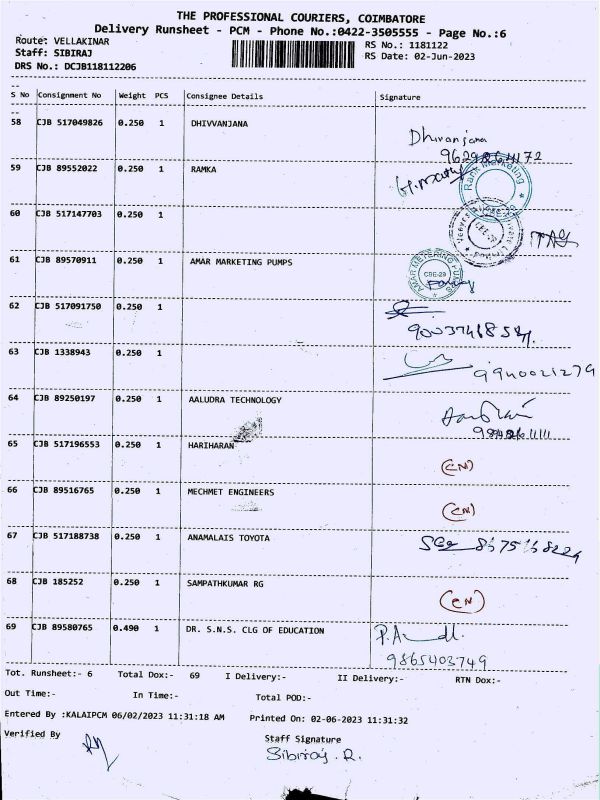 THE PROFESSIONAL COURIERS, COIMBATORE
Delivery Runsheet - PCM - Phone No.:0422-3505555 - Page No.:6
Route: VELLAKINAR
RS No.: 1181122
Staff: SIBIRAJ
RS Date: 02-Jun-2023
DRS No.: DCJB118112206
S No Consignment No Weight PCS Consignee Details Signature
58 CJB 517049826 0.250 1 DHIVVANJANA
Dhivanjana
59 CJB 89552022 0.250 1 RAMKA
60 CJB 517147703 0.250 1
61 CJB 89570911 0.250 1 AMAR MARKETING PUMPS
AMAR METERING PUMPS
CBE-29
62 CJB 517091750 0.250 1
63 CJB 1338943 0.250 1
9940021279
64 CJB 89250197 0.250 1 AALUDRA TECHNOLOGY
65 CJB 517196553 0.250 1 HARIHARAN
(CN)
66 CJB 89516765 0.250 1 MECHMET ENGINEERS
(CN)
67 CJB 517188738 0.250 1 ANAMALAIS TOYOTA
68 CJB 185252 0.250 1 SAMPATHKUMAR RG
(CN)
69 CJB 89580765 0.490 1 DR. S.N.S. CLG OF EDUCATION
9865403749
Tot. Runsheet:- 6 Total Dox:- 69 I Delivery:- II Delivery:- RTN Dox:-
Out Time:- In Time:- Total POD:-
Entered By :KALAIPCM 06/02/2023 11:31:18 AM Printed On: 02-06-2023 11:31:32
Verified By Staff Signature
Sibiraj. R.